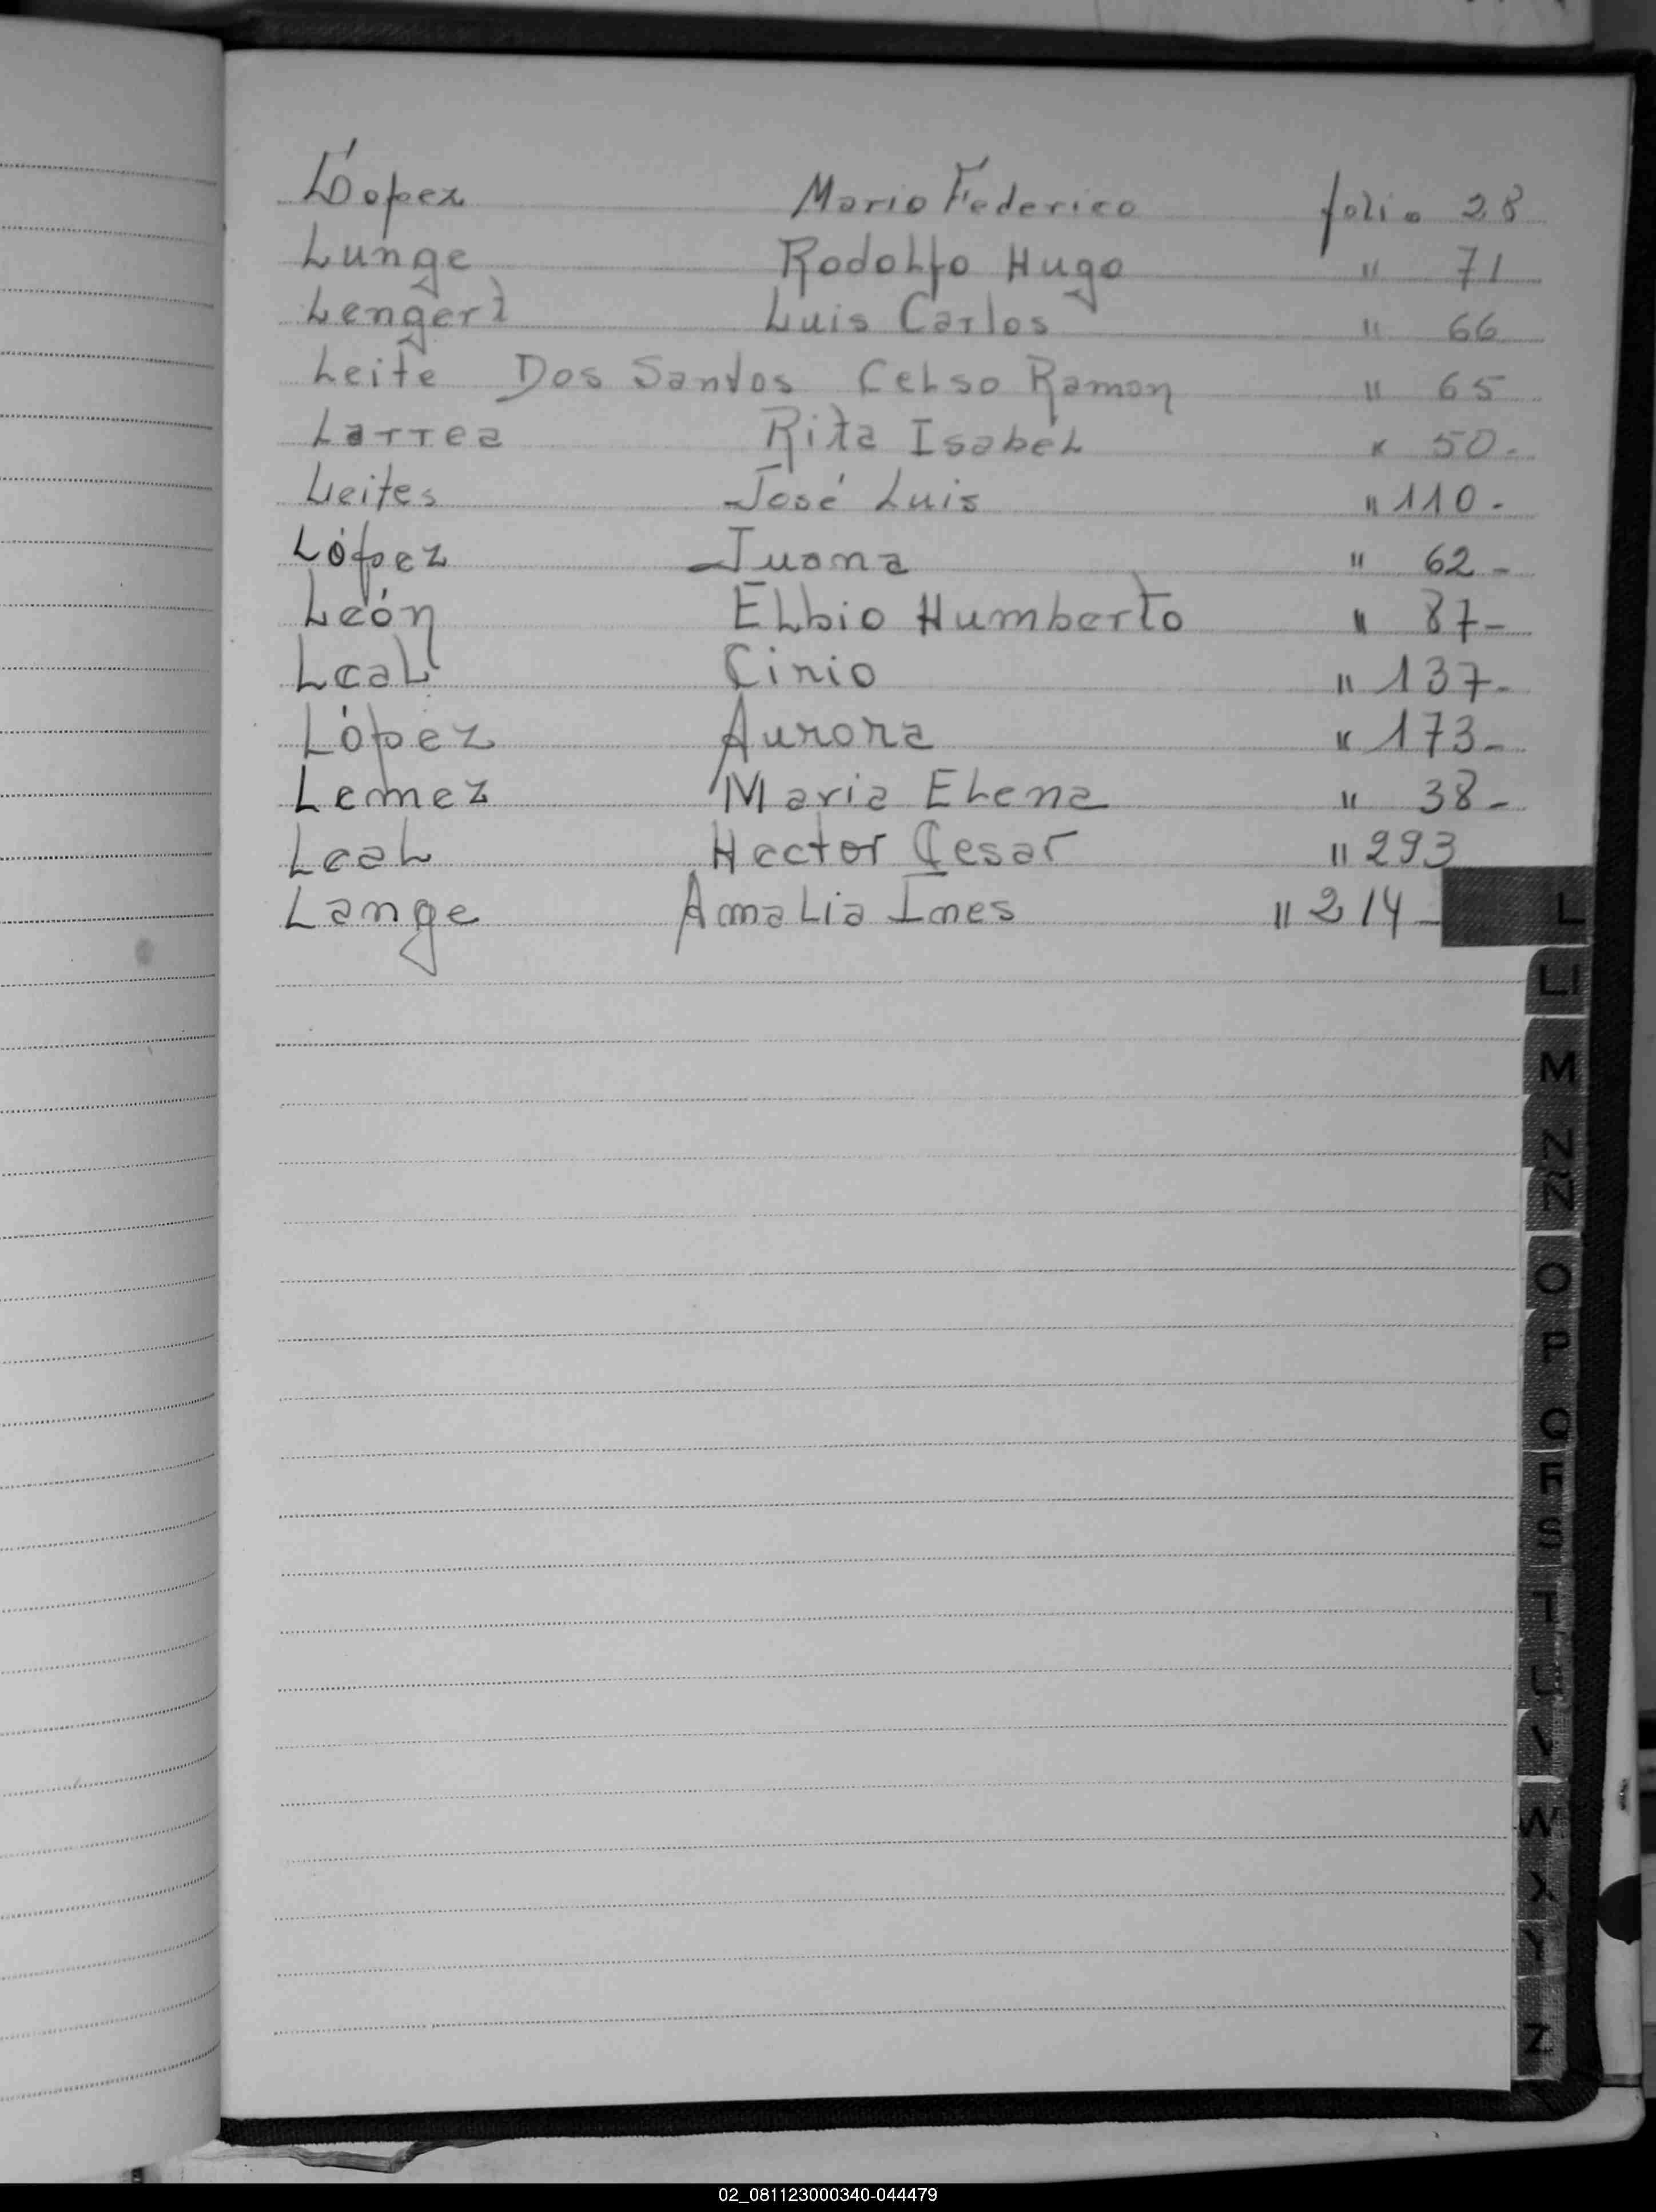 López Mario Federico folio 28
Lunge Rodolfo Hugo " 71
Lengert Luis Carlos " 66
Leite Dos Santos Celso Ramon " 65
Larrea Rita Isabel " 50-
Leites José Luis " 110-
López Juana " 62-
León Elbio Humberto " 87-
Leal Cirio " 137-
López Aurora " 173-
Lemez Maria Elena " 38-
Leal Hector Cesar " 293
Lange Amalia Ines " 214-
L
Ll
M
N
Ñ
O
P
Q
R
S
T
U
V
W
X
Y
Z
02_081123000340-044479